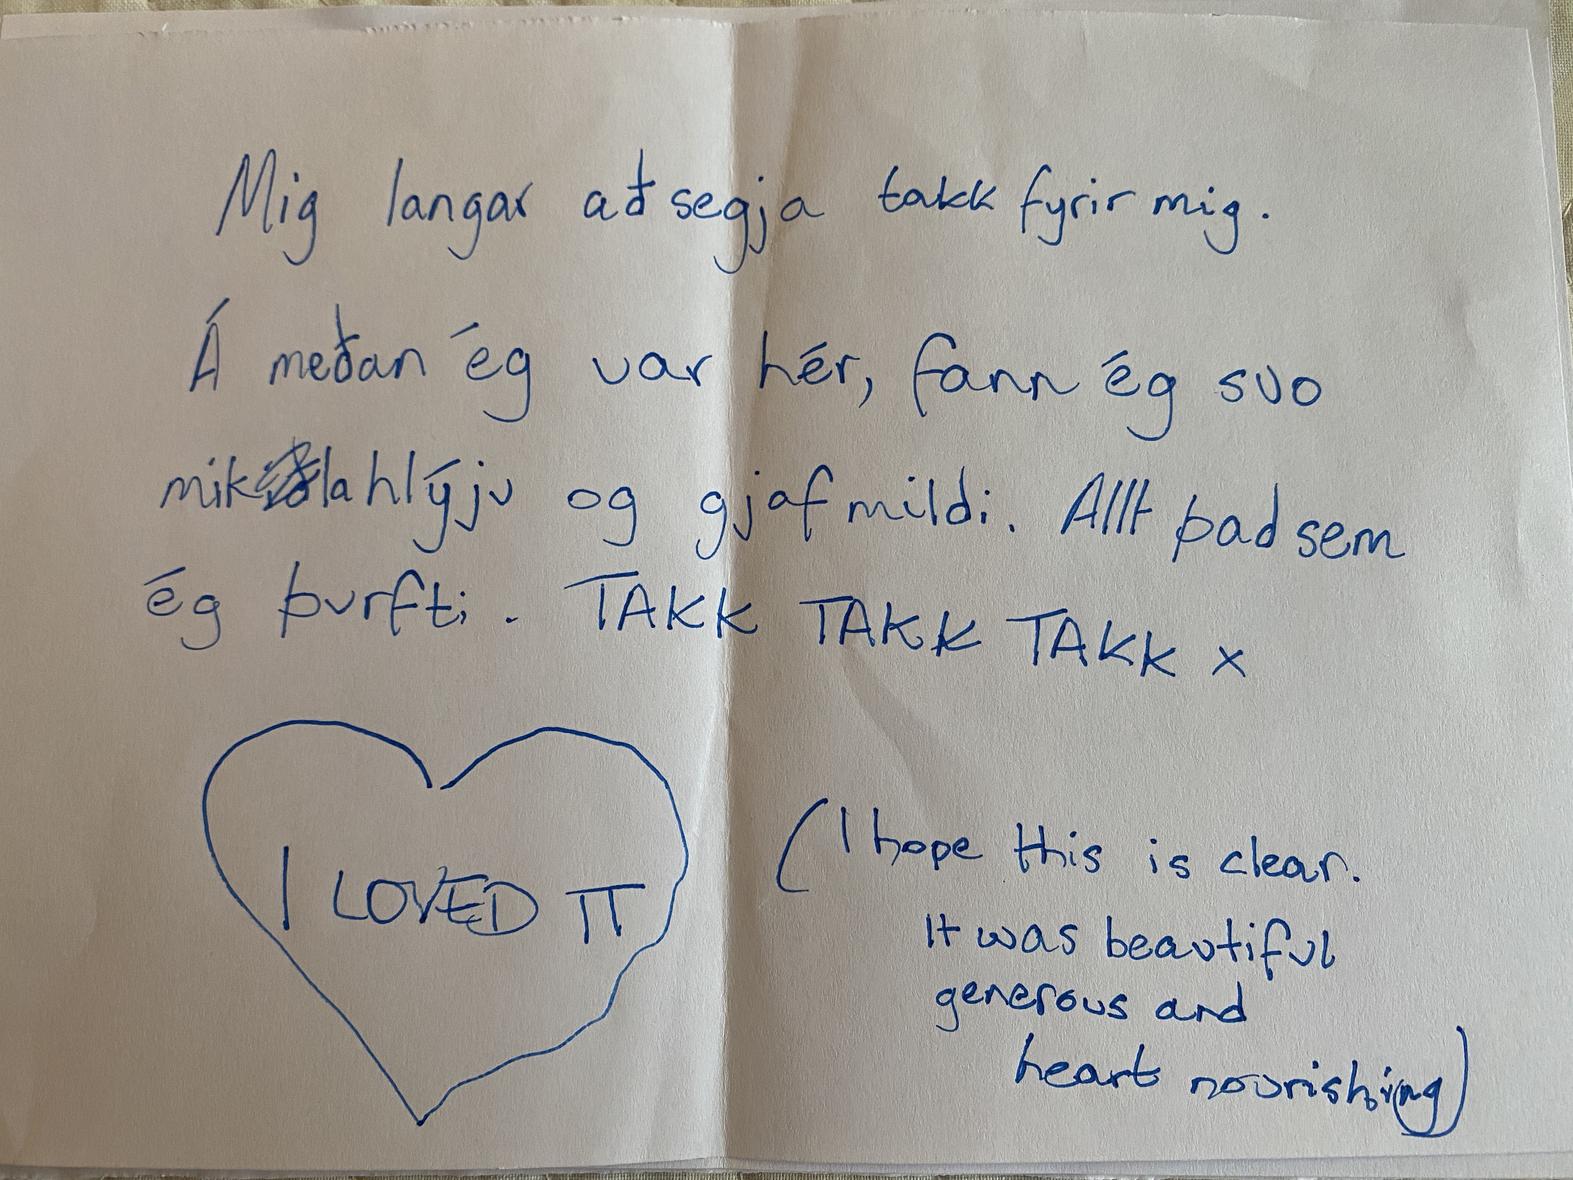 Mig langar að segja takk fyrir mig.
Á meðan ég var hér, fann ég svo
mikla hlýju og gjafmildi. Allt það sem
ég þurfti. TAKK TAKK TAKK x
I LOVED IT
(I hope this is clear.
It was beautiful
generous and
heart nourishing)